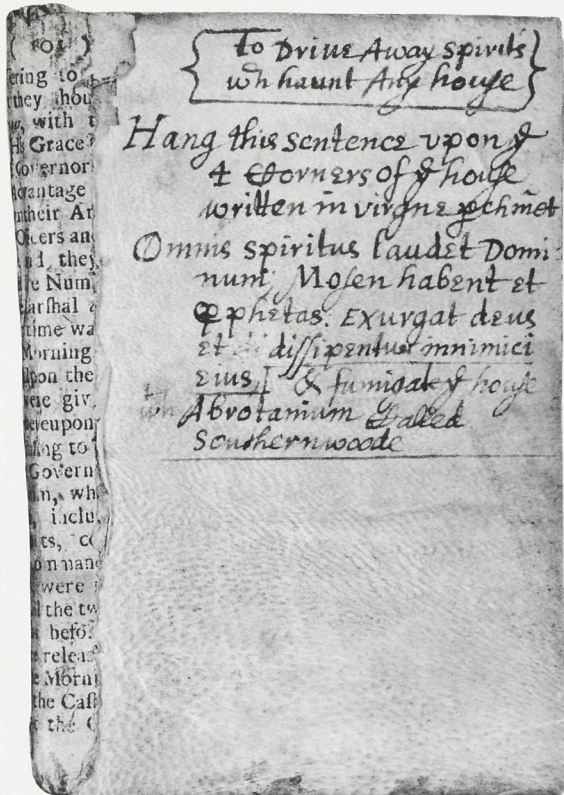 ( 101 )
ering to
they shou
w, with t
His Grace
Governor
dvantage
their Ar
Officers an
d, they
e Num
arshal
time wa
Morning
Upon the
were giv
hereupon
ing to
Govern
n, wh
inclu
ts, c
ommand
were
d the tw
befo
releas
e Morn
the Cast
t the C
To Drive Away spirits
wh haunt Any house
Hang this sentence upon yͤ
4 Corners of yͤ house
written in virgne ꝑchmet
Omnis spiritus laudet Domi-
num; Mosen habent et
ꝓphetas. Exurgat deus
et dissipentur innimici
eius & fumigate yͤ house
wth Abrotanium Called
Southernwoode